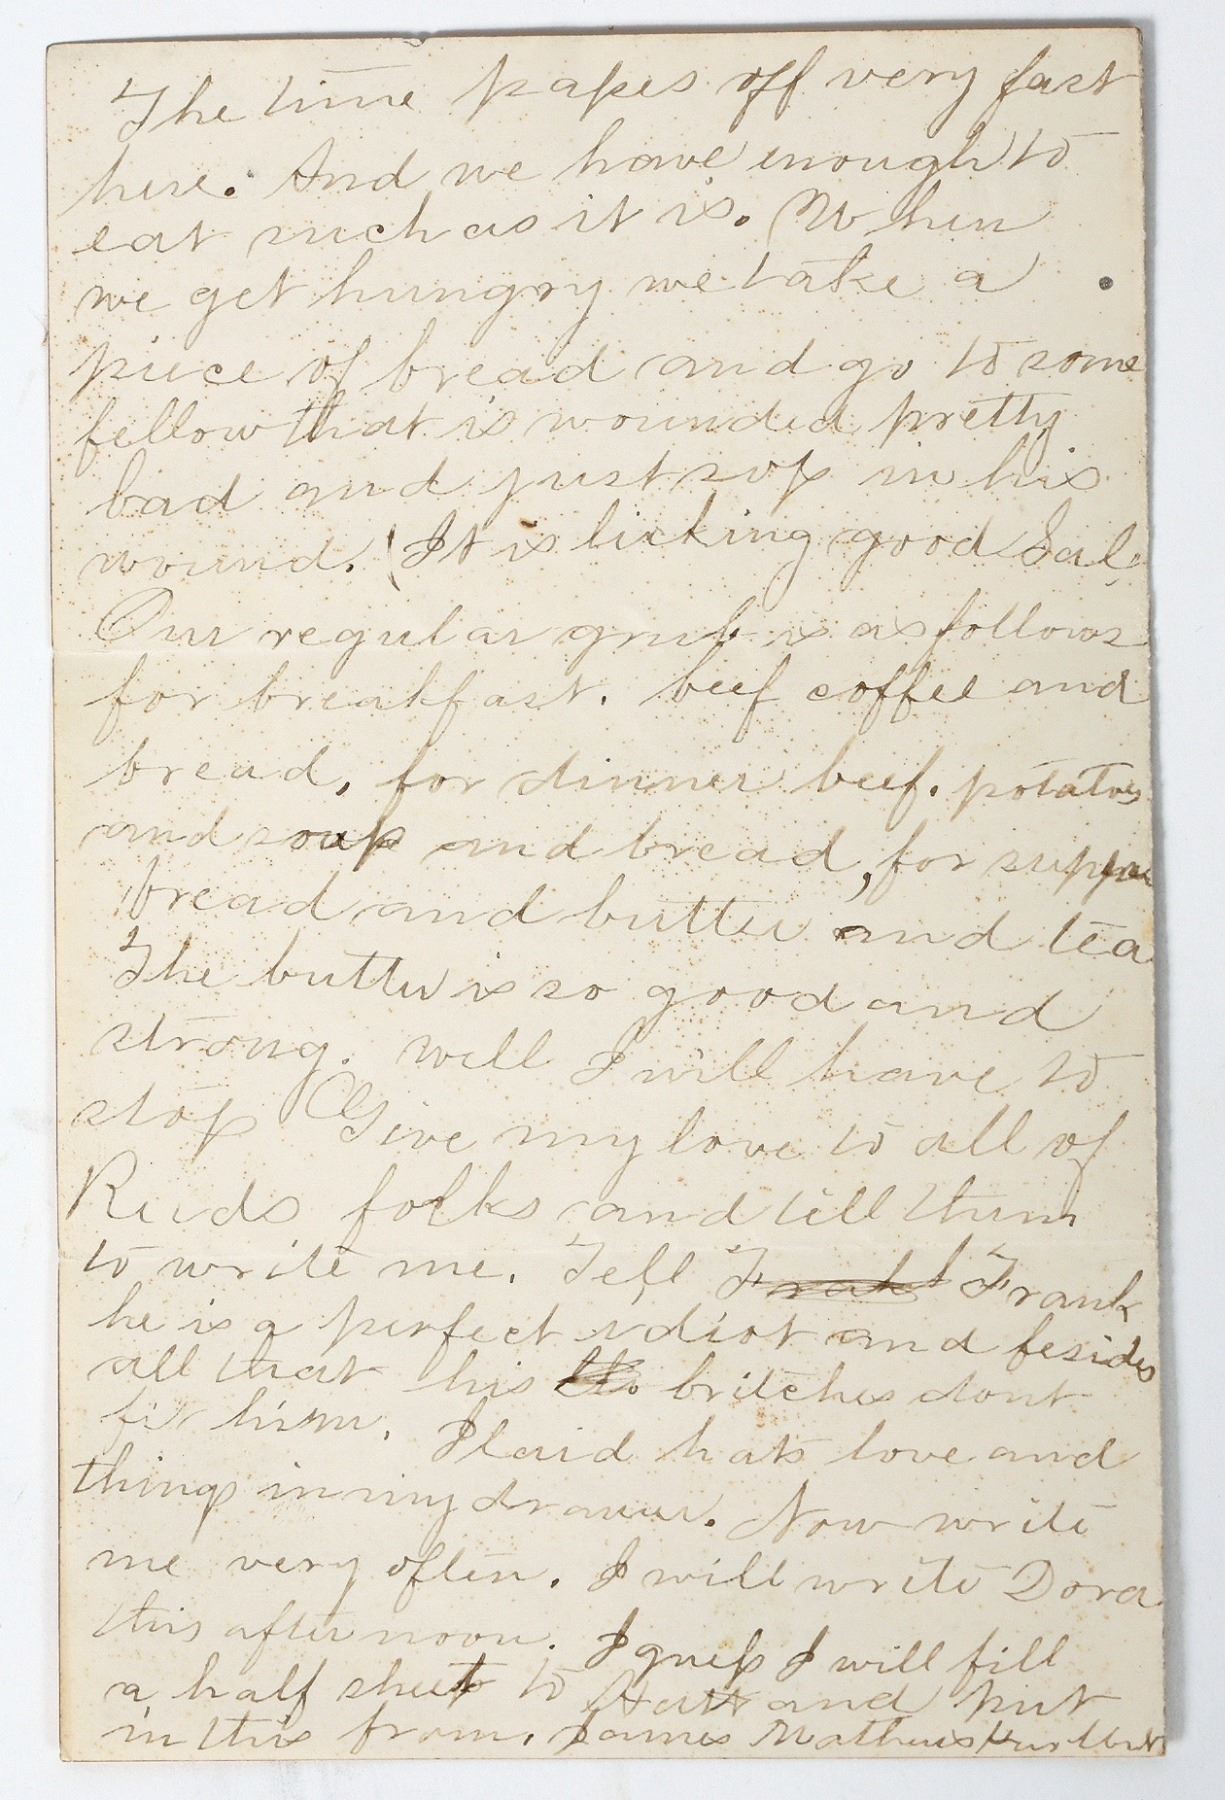 The time passes off very fast
here. And we have enough to
eat such as it is. When
we get hungry we take a
piece of bread and go to some
fellow that is wounded pretty
bad and just sop in his
wound. It is licking good Sal,
Our regular grub is as follows
for breakfast. beef coffee and
bread, for dinner beef. potatoes
and soup and bread, for supper
bread and butter and tea
The butter is so good and
strong. Well I will have to
stop Give my love to all of
Reeds folks and tell them
to write me. Tell Frank Frank
he is a perfect idiot and besides
all that his britches dont
fit him. I laid hats love and
things in my drawer. Now write
me very often. I will write Dora
this after noon. I guess I will fill
a half sheet to Hatt and put
in this from. James Mathews